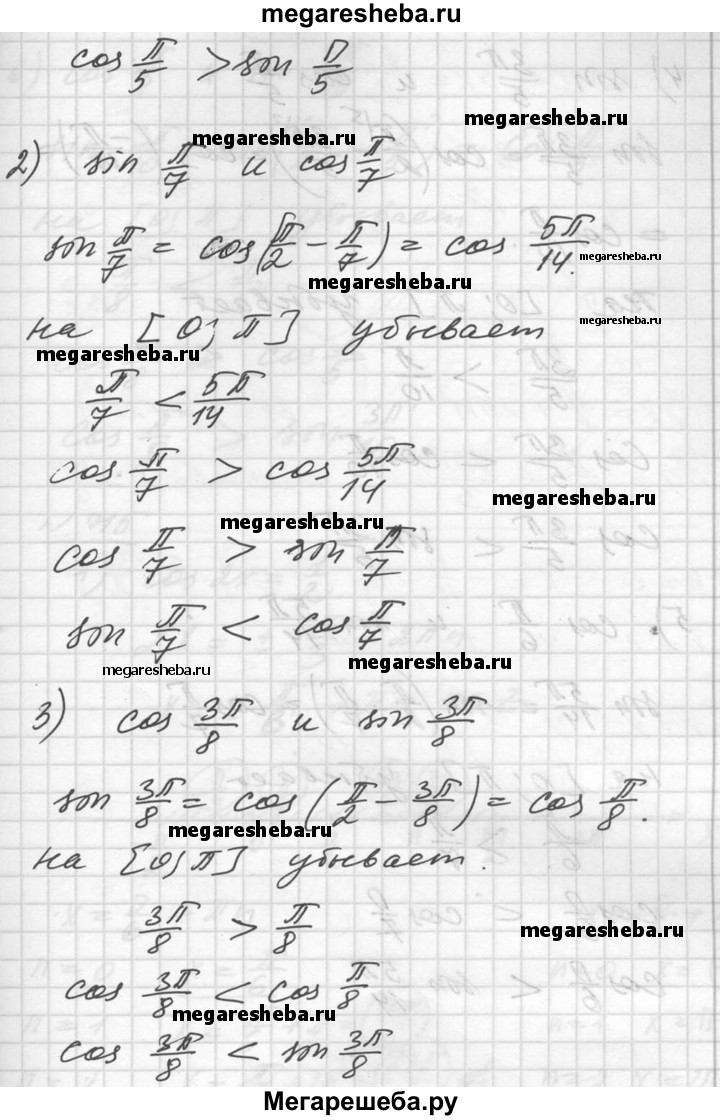 megaresheba.ru
cos π/5 > sin π/5
megaresheba.ru
megaresheba.ru
2) sin π/7 и cos π/7
sin π/7 = cos(π/2 − π/7) = cos 5π/14.
megaresheba.ru
megaresheba.ru
на [0; π] убывает
megaresheba.ru
megaresheba.ru
π/7 < 5π/14
cos π/7 > cos 5π/14
megaresheba.ru
megaresheba.ru
cos π/7 > sin π/7
sin π/7 < cos π/7
megaresheba.ru
megaresheba.ru
3) cos 3π/8 и sin 3π/8
sin 3π/8 = cos(π/2 − 3π/8) = cos π/8.
megaresheba.ru
на [0; π] убывает.
3π/8 > π/8
megaresheba.ru
cos 3π/8 < cos π/8
megaresheba.ru
cos 3π/8 < sin 3π/8
Мегарешеба.ру